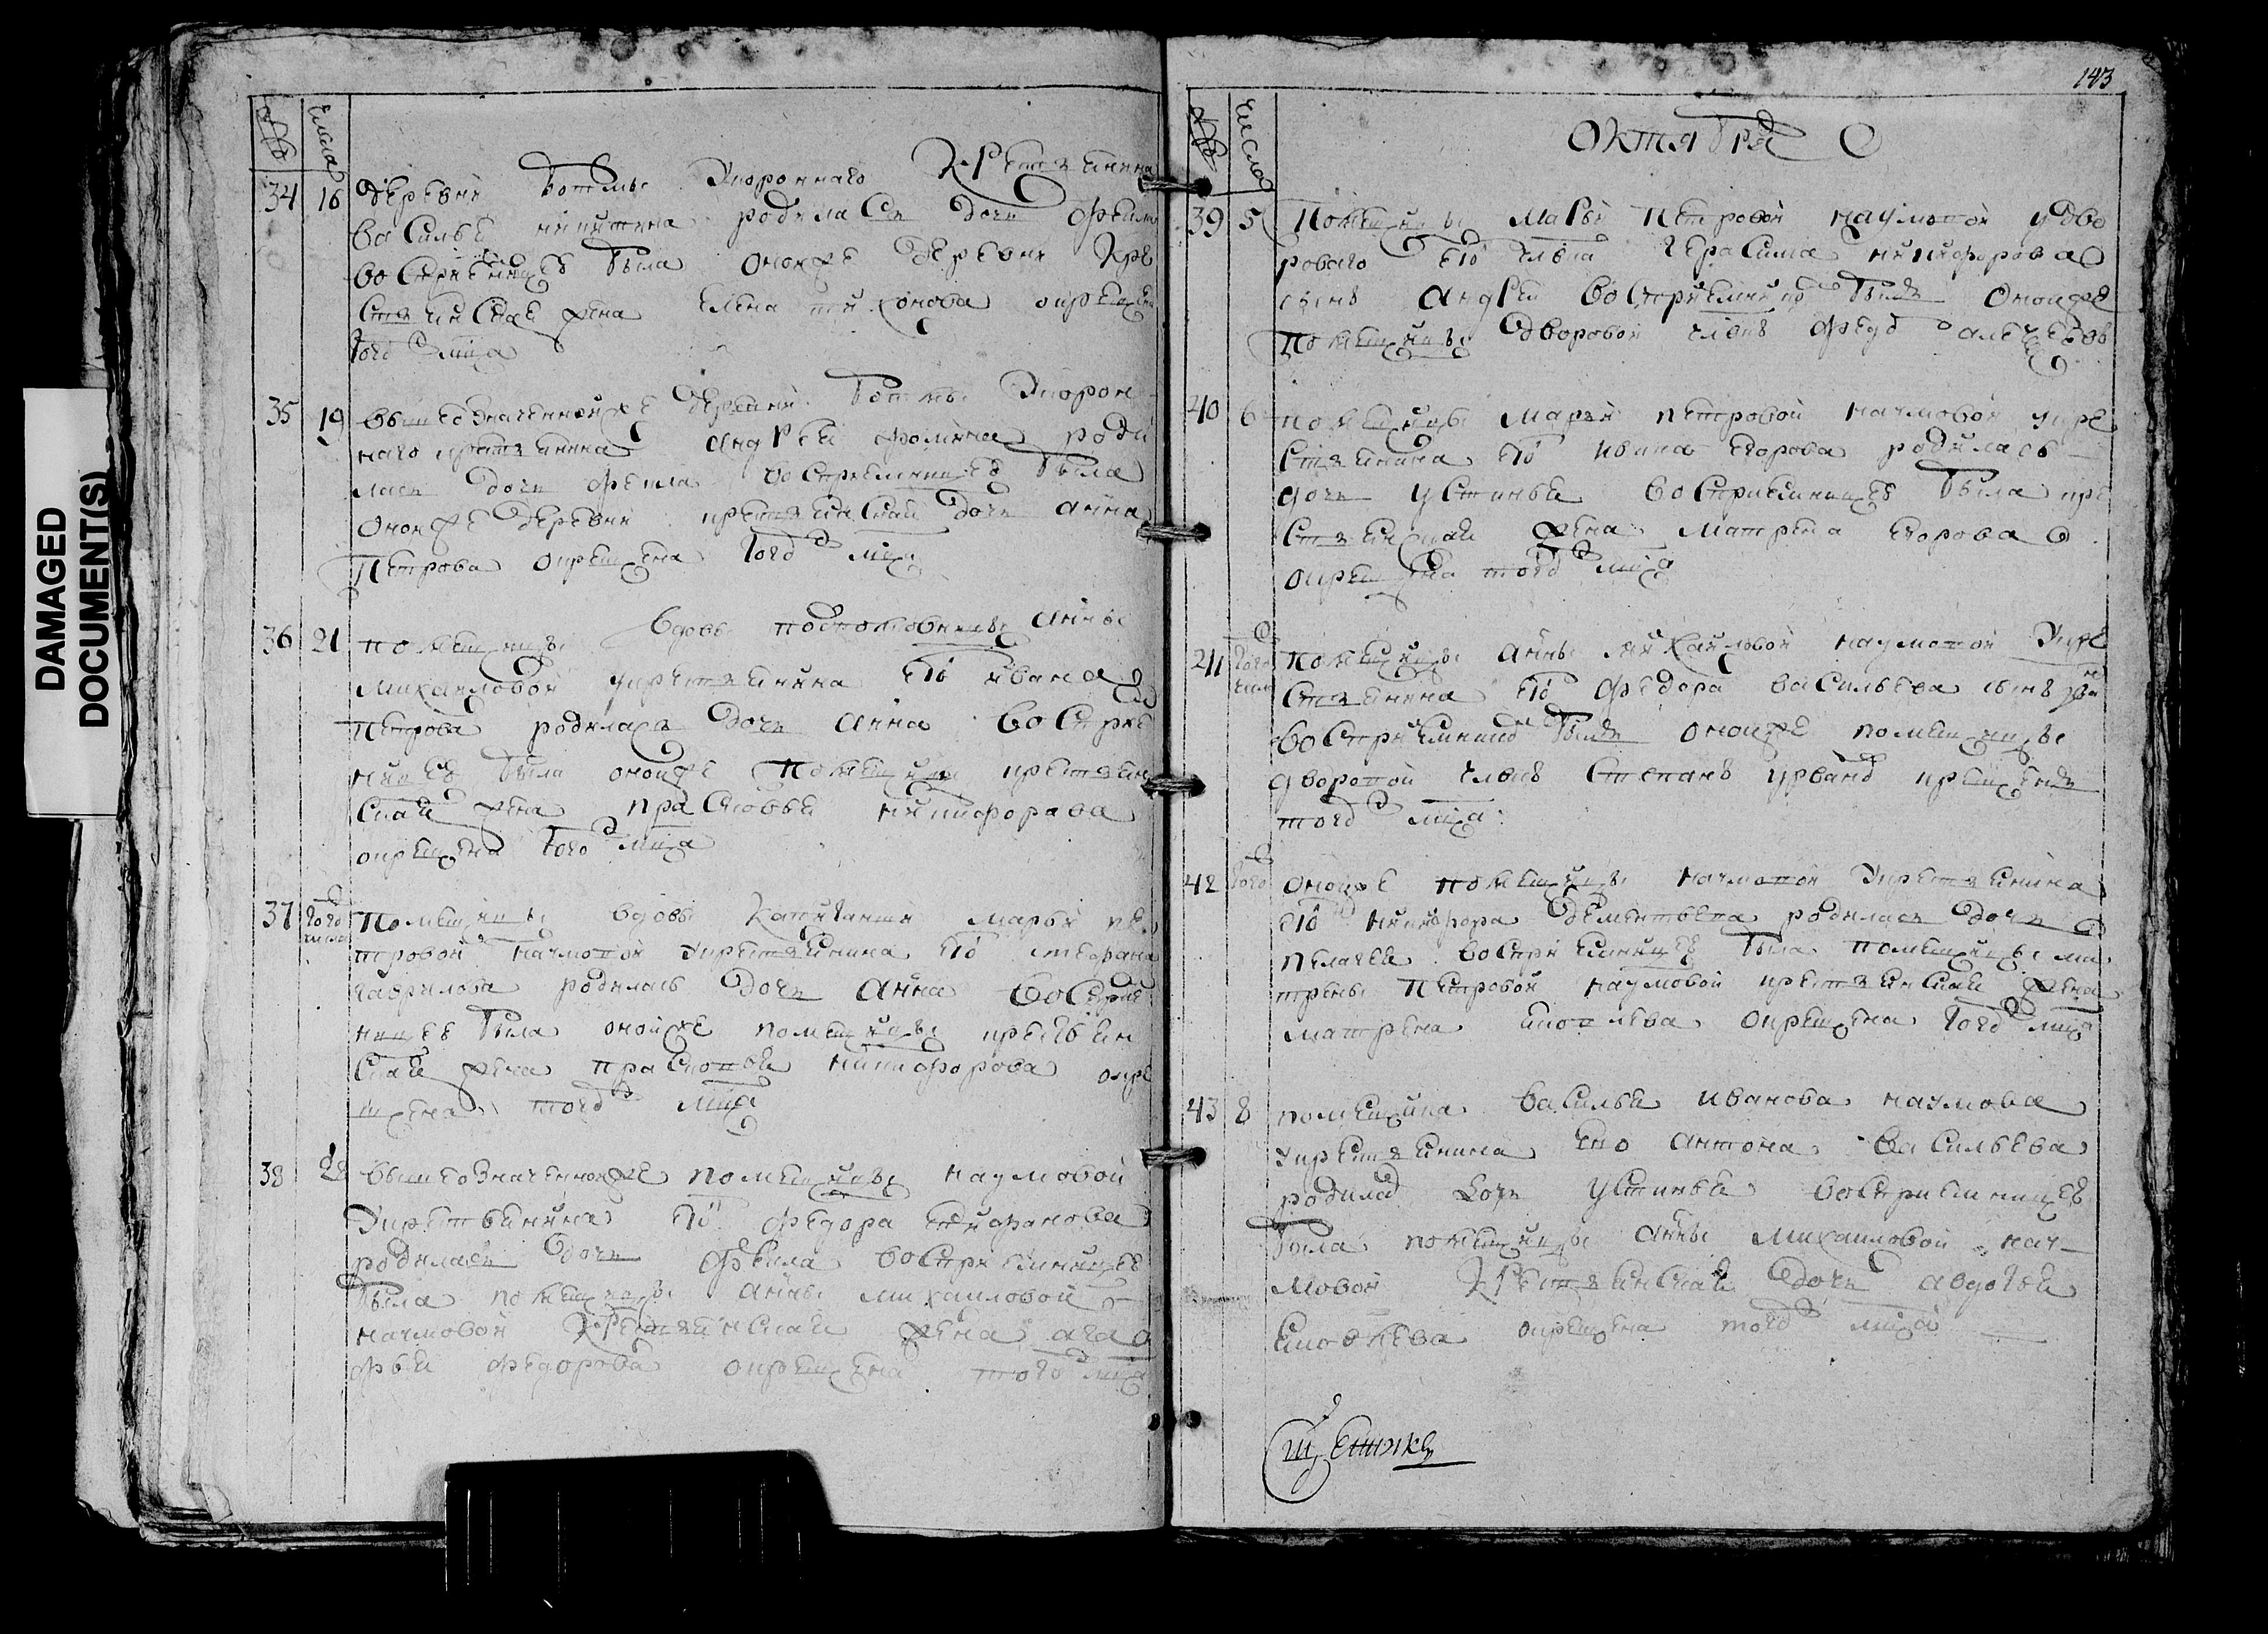 DAMAGED
DOCUMENT(S)
№ числа
34 16 деревни Ботмы Экономнаго крестьянина
василья никитина родилась дочь фекла
восприемницею была оной же деревни кре
стьянская жена Елена тихонова окрещена
того мца
35 19 вышеозначенной же деревни Ботмы Эконом
наго крестьянина Андрея фомина роди
лась дочь фекла восприемницею была
оной же деревни крестьянская дочь анна
Петрова окрещена того мца
36 21 помещицы вдовы подполковницы анны
михаиловой укрестьянина ея ивана
петрова родилась дочь анна восприе
ницею была оной же помещицы крестьян
ская жена прасковья никифорова
окрещена того мца
37 того числа помещицы вдовы капитанши марьи пе
тровой наумовой укрестьянина ея стефана
гаврилова родилась дочь анна восприе
ницею была оной же помещицы крестьян
ская жена прасковья никифорова окре
щена того мца
38 28 вышеозначенной же помещицы наумовой
укрестьянина ея федора епифанова
родилась дочь фекла восприемницею
была помещицы анны михаиловой
наумовой крестьянская жена ага
фья федорова окрещена того мца
143
№ числа
октября
39 5 Помещицы марьи петровой наумовой удво
роваго ея члвка герасима никифорова
сынъ андрей восприемникъ былъ оной же
помещицы дворовой члвкъ федо алексеевъ
40 6 помещицы марьи петровой наумовой укре
стьянина ея ивана егорова родилась
дочь устинья восприемницею была кре
стьянская жена матрена егорова
окрещена того мца
41 того числа помещицы анны михайловой наумовой укре
стьянина ея федора васильева сынъ иванъ
восприемникъ былъ оной же помещицы
дворовой члвкъ степанъ окрещенъ
того мца
42 того оной же помещицы наумовой укрестьянина
ея никифора дементьева родилась дочь
пелагея восприемницею была помещицы ма
трены петровой наумовой крестьянская жена
матрена окрещена того мца
43 8 помещика василья иванова наумова
укрестьянина ево антона васильева
родилас дочь устинья восприемницею
была помещицы анны михаиловой нау
мовой крестьянская дочь авдотья
окрещена того мца